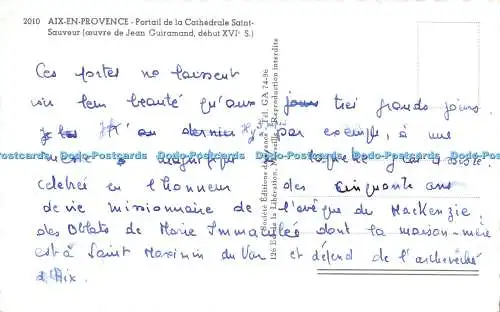 2010 AIX-EN-PROVENCE - Portail de la Cathédrale Saint-
Sauveur (œuvre de Jean Guiramand, début XVIᵉ S.)
Ces portes ne laissent
voir leur beauté qu'aux très grands jours.
au dernier par exemple, à une
messe magnifique à laquelle j'ai assisté.
célébrée en l'honneur des cinquante ans
de vie missionnaire de l'évêque du MacKenzie.
des Oblats de Marie Immaculée dont la maison-mère
est à Saint Maximin du Var et dépend de l'archevêché
d'Aix.
Société Éditions de Provence Tél. GA 74-96
126 Bd de la Libération, Marseille Reproduction interdite
Dodo-Postcards Dodo-Postcards Dodo-Postcards Dodo-Postcards Dodo-Postcards